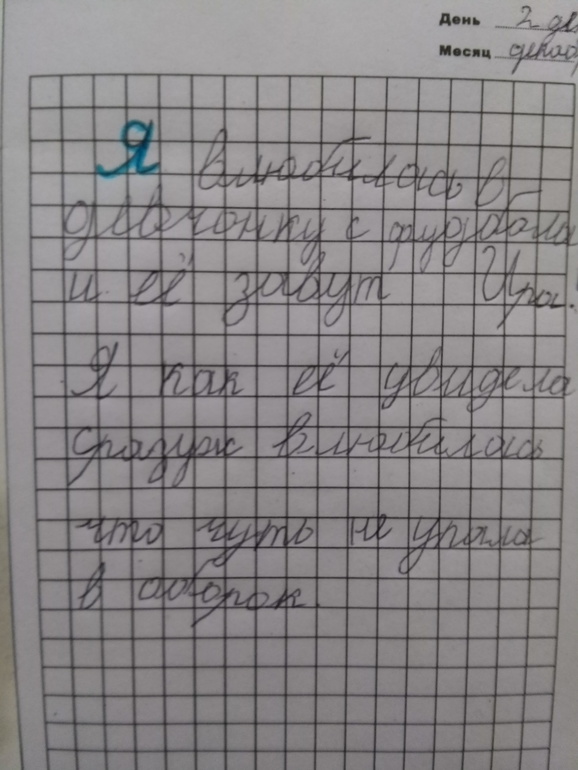 День 2 де
Месяц декаб
Я влюбилась в
девчонку с фудзбола
и её завут Ира!
Я как её увидела
сразуж влюбилась
что чуть не упала
в обборок.